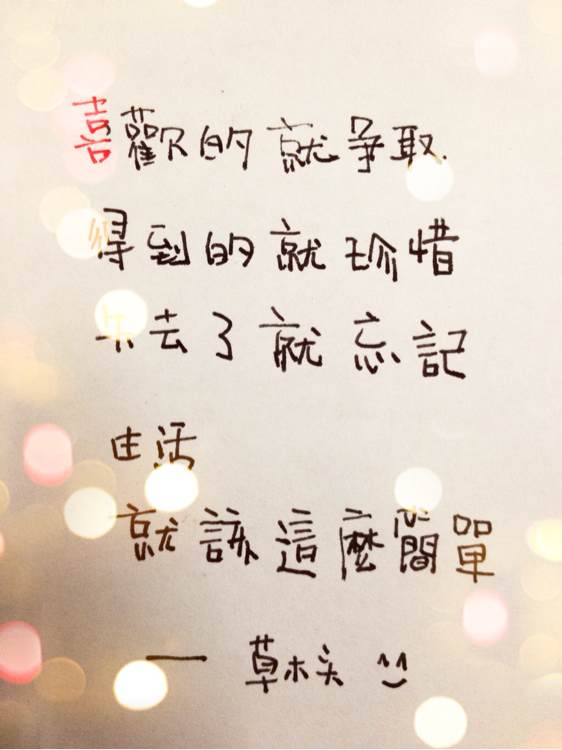 喜歡的就爭取
得到的就珍惜
失去了就忘記
生活
就該這麼簡單
— 草木头